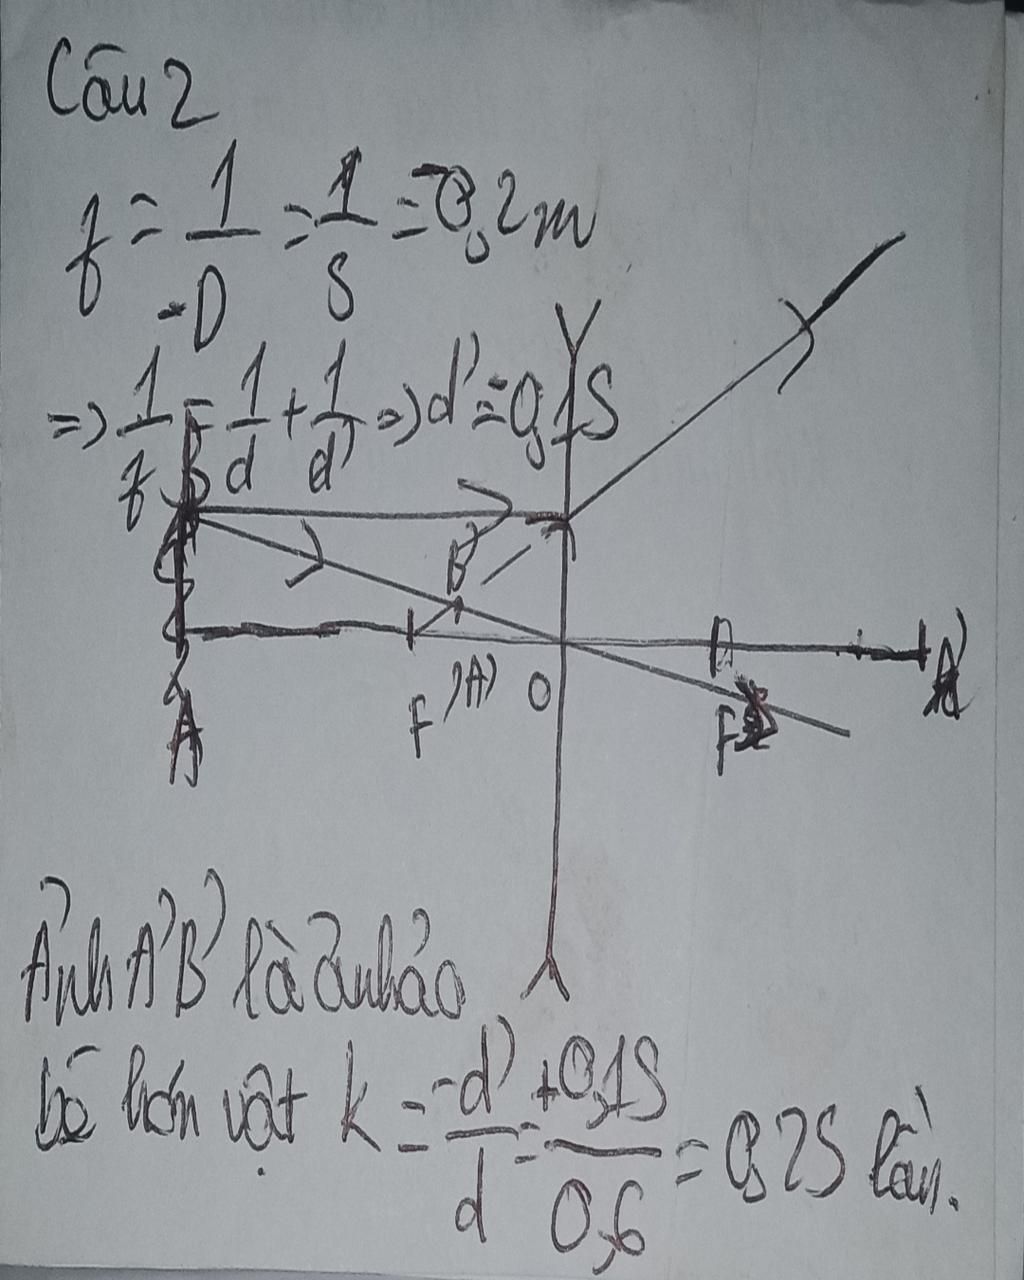 Câu 2
f = 1/-D = 1/5 = -0,2m
=> 1/f = 1/d + 1/d' => d' = 0,15
B
B'
F' (A') O F A'
A
Ảnh A'B' là ảnh ảo
bé hơn vật k = -d'/d = +0,15/0,6 = 0,25 lần.